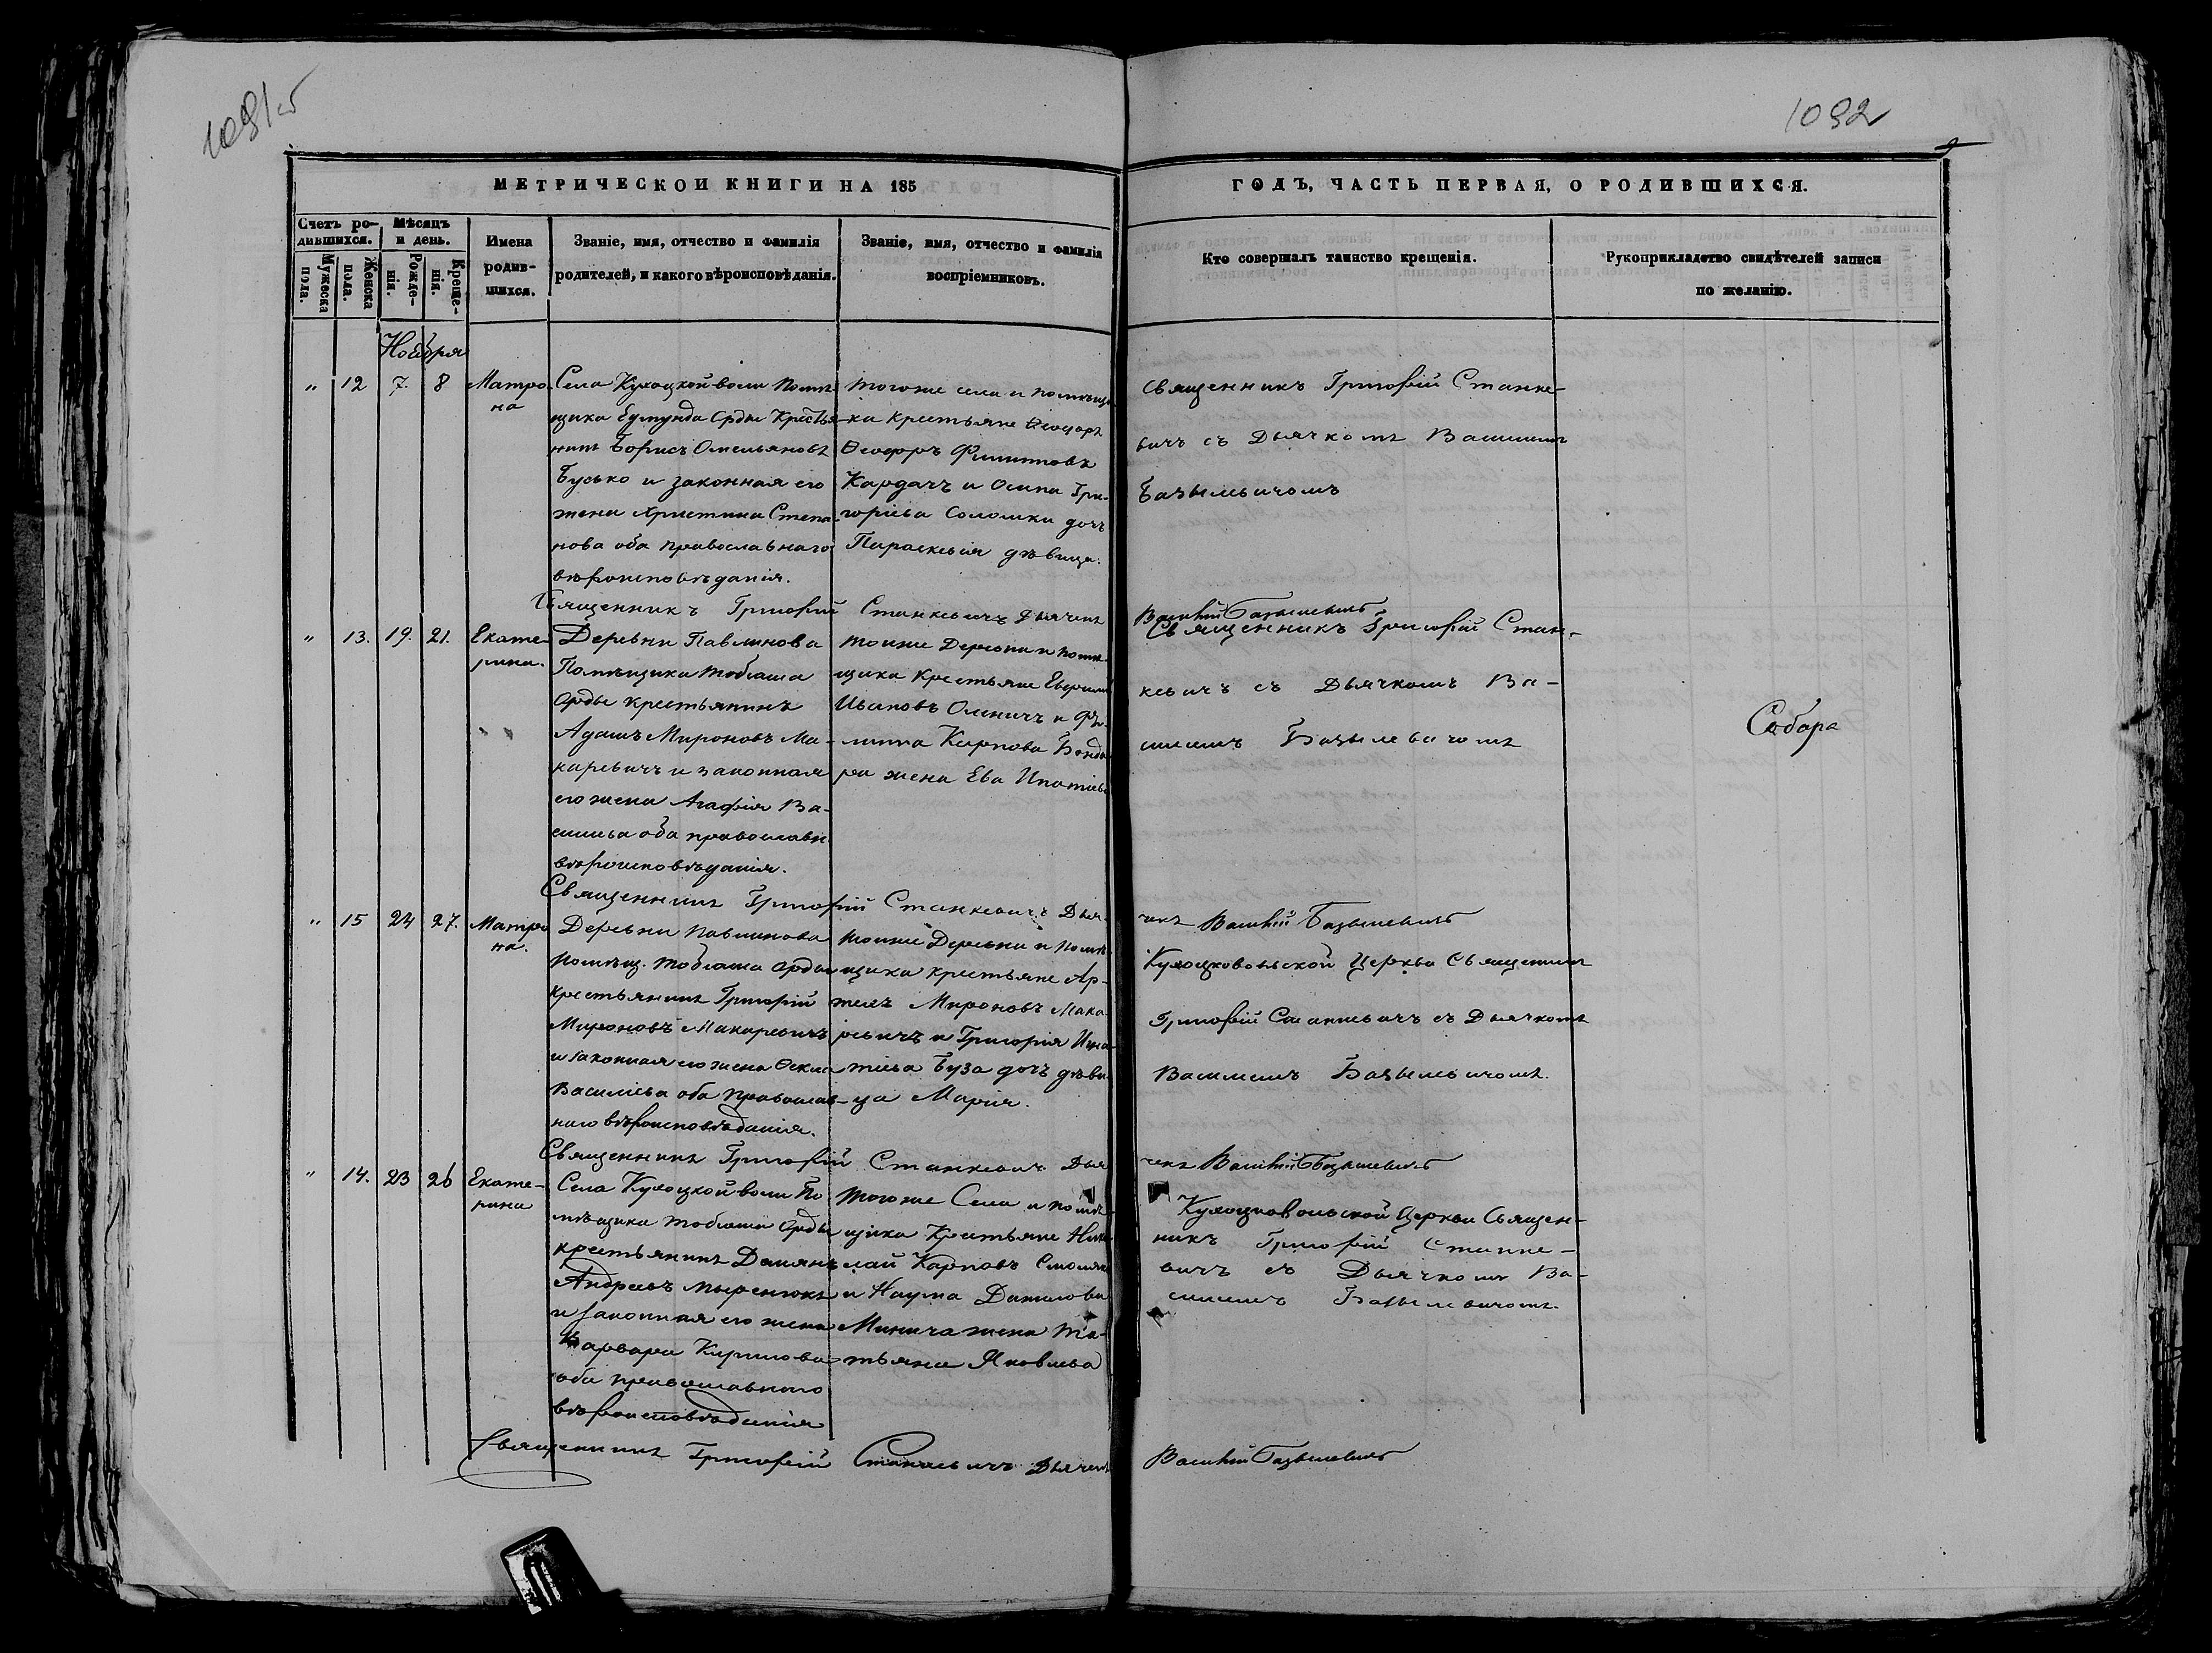 1032
МЕТРИЧЕСКОЙ КНИГИ НА 185
ГОДЪ, ЧАСТЬ ПЕРВАЯ, О РОДИВШИХСЯ.
Счетъ ро-
дившихся.
Мужеска пола.
Женска пола.
Мѣсяцъ
и день.
Рожде-
нія.
Креще-
нія.
Имена
родив-
шихся.
Званіе, имя, отчество и фамилія
родителей, и какого вѣроисповѣданія.
Званіе, имя, отчество и фамилія
воспріемниковъ.
Кто совершалъ таинство крещенія.
Рукоприкладство свидѣтелей записи
по желанію.
Ноября
" 12 7. 8
Матро
на
Села Кухоцкой-воли помѣ
щика Едмунда Орды Крестья
нинъ Борисъ Омельяновъ
Бусько и законная его
жена Христина Степа-
нова оба православнаго
вѣроисповѣданія.
тогоже села и помѣщи
ка крестьяне
Ѳеодоръ Филиповъ
Кардачъ и Осипа Гри-
горіева Соломки дочь
Параскевія дѣвица.
Священникъ Григорій Станке-
вичъ съ Дьячкомъ Василіемъ
Базылевичомъ
Священникъ Григорій Станкевичъ Дьячекъ
Василій Базылевичъ
" 13. 19. 21.
Екате-
рина.
Деревни Павлинова
Помѣщика Тобіаша
Орды крестьянинъ
Адамъ Мироновъ Ма-
каревичъ и законная
его жена Агафія Ва-
силіева оба православн.
вѣроисповѣданія.
тоиже Деревни и помѣ-
щика крестьяне
Ивановъ
Карпова Бонда
ра жена Ева
Священникъ Григорій Стан-
кевичъ съ Дьячкомъ Ва-
силіемъ Базылевичомъ
Собара
Священникъ Григорій Станкевичъ Дья-
чекъ Василій Базылевичъ
" 15 24 27.
Матро
на.
Деревни Павлинова
Помѣщ. Тобіаша Орды
крестьянинъ Григорій
Мироновъ Макаревичъ
и законная его жена
Василіева оба православ-
наго вѣроисповѣданія.
тоиже Деревни и помѣ-
щика крестьяне Ар-
темъ Мироновъ Мака-
ревичъ и Григорія Игна-
тіева Буза дочь дѣви-
ца Марія.
Кухоцковольской Церкви Священникъ
Григорій Станкевичъ съ Дьячкомъ
Василіемъ Базылевичомъ.
Священникъ Григорій Станкевичъ Дья
чекъ Василій Базылевичъ
" 14. 23 26
Екате-
рина
Села Кухоцкой воли По
мѣщика Тобіаша Орды
крестьянинъ Демянъ
Андреевъ
и законная его жена
Варвара Кирилова
оба православнаго
вѣроисповѣданія
тогоже Села и помѣ-
щика Крестьяне Нико
лай Карповъ
и Наума Данилова
Минича жена Та-
тьяна Яковлева
Кухоцковольской Церкви Священ-
никъ Григорій Станке-
вичъ съ Дьячкомъ Ва-
силіемъ Базылевичомъ.
Священникъ Григорій Станкевичъ Дьячекъ
Василій Базылевичъ